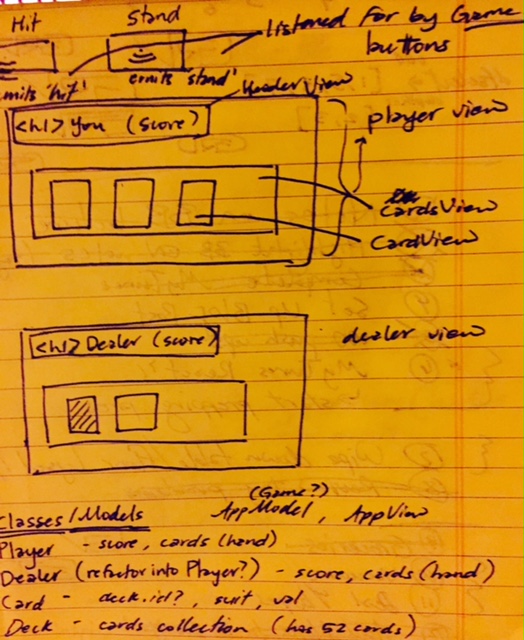 Hit
Stand
listened for by Game
buttons
emits 'hit'
emits 'stand'
HeaderView
<h1> You (score)
player view
CardsView
CardView
<h1> Dealer (score)
dealer view
(Game?)
Classes/Models AppModel, AppView
Player - score, cards (hand)
Dealer (refactor into Player?) - score, cards (hand)
Card - deck.id?, suit, val
Deck - cards collection (has 52 cards)